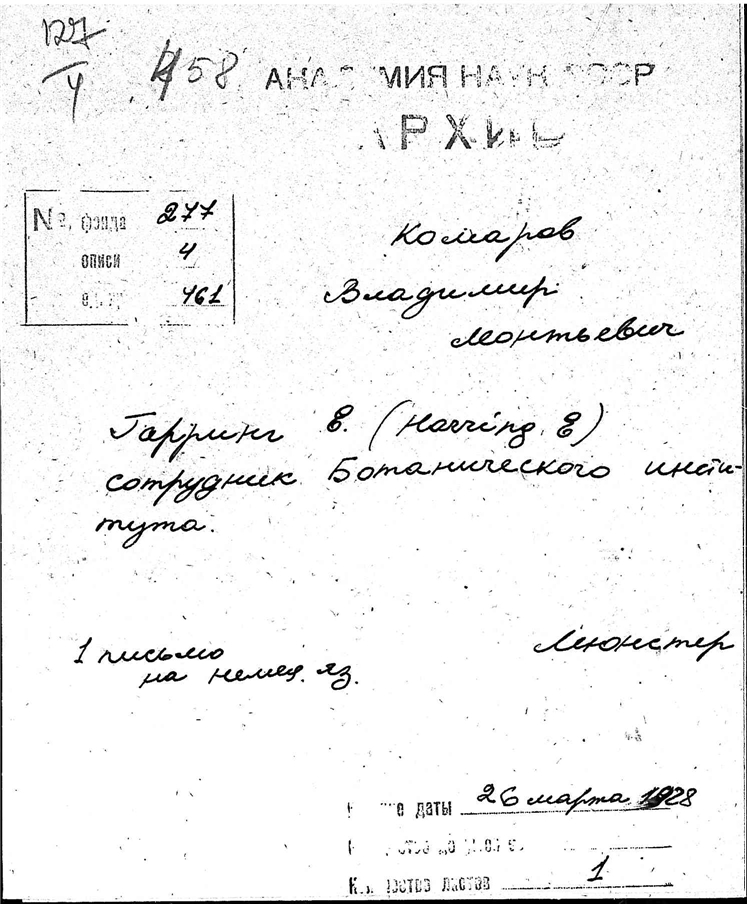 127
4
458
АКАДЕМИЯ НАУК СССР
АРХИВ
№ фонда 277
описи 4
461
Комаров
Владимир
Леонтьевич
Гарринг Е. (Harring, E)
сотрудник Ботанического инсти-
тута.
1 письмо
на немец. яз.
Мюнстер
даты 26 марта 1928
листов 1